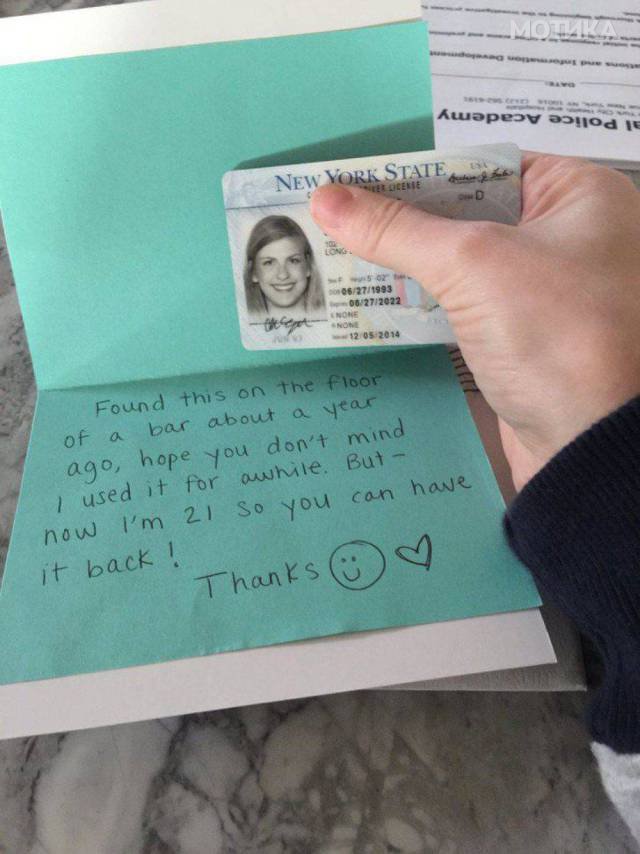 МОТИКА
ations and Information Development
DATE:
al Police Academy
NEW YORK STATE
USA
DRIVER LICENSE
D
LONG
5'-02"
DOB 06/27/1993
Expires 06/27/2022
E NONE
R NONE
Issued 12/05/2014
JUN 93
Found this on the floor
of a bar about a year
ago, hope you don't mind
I used it for awhile. But-
now I'm 21 so you can have
it back!
Thanks